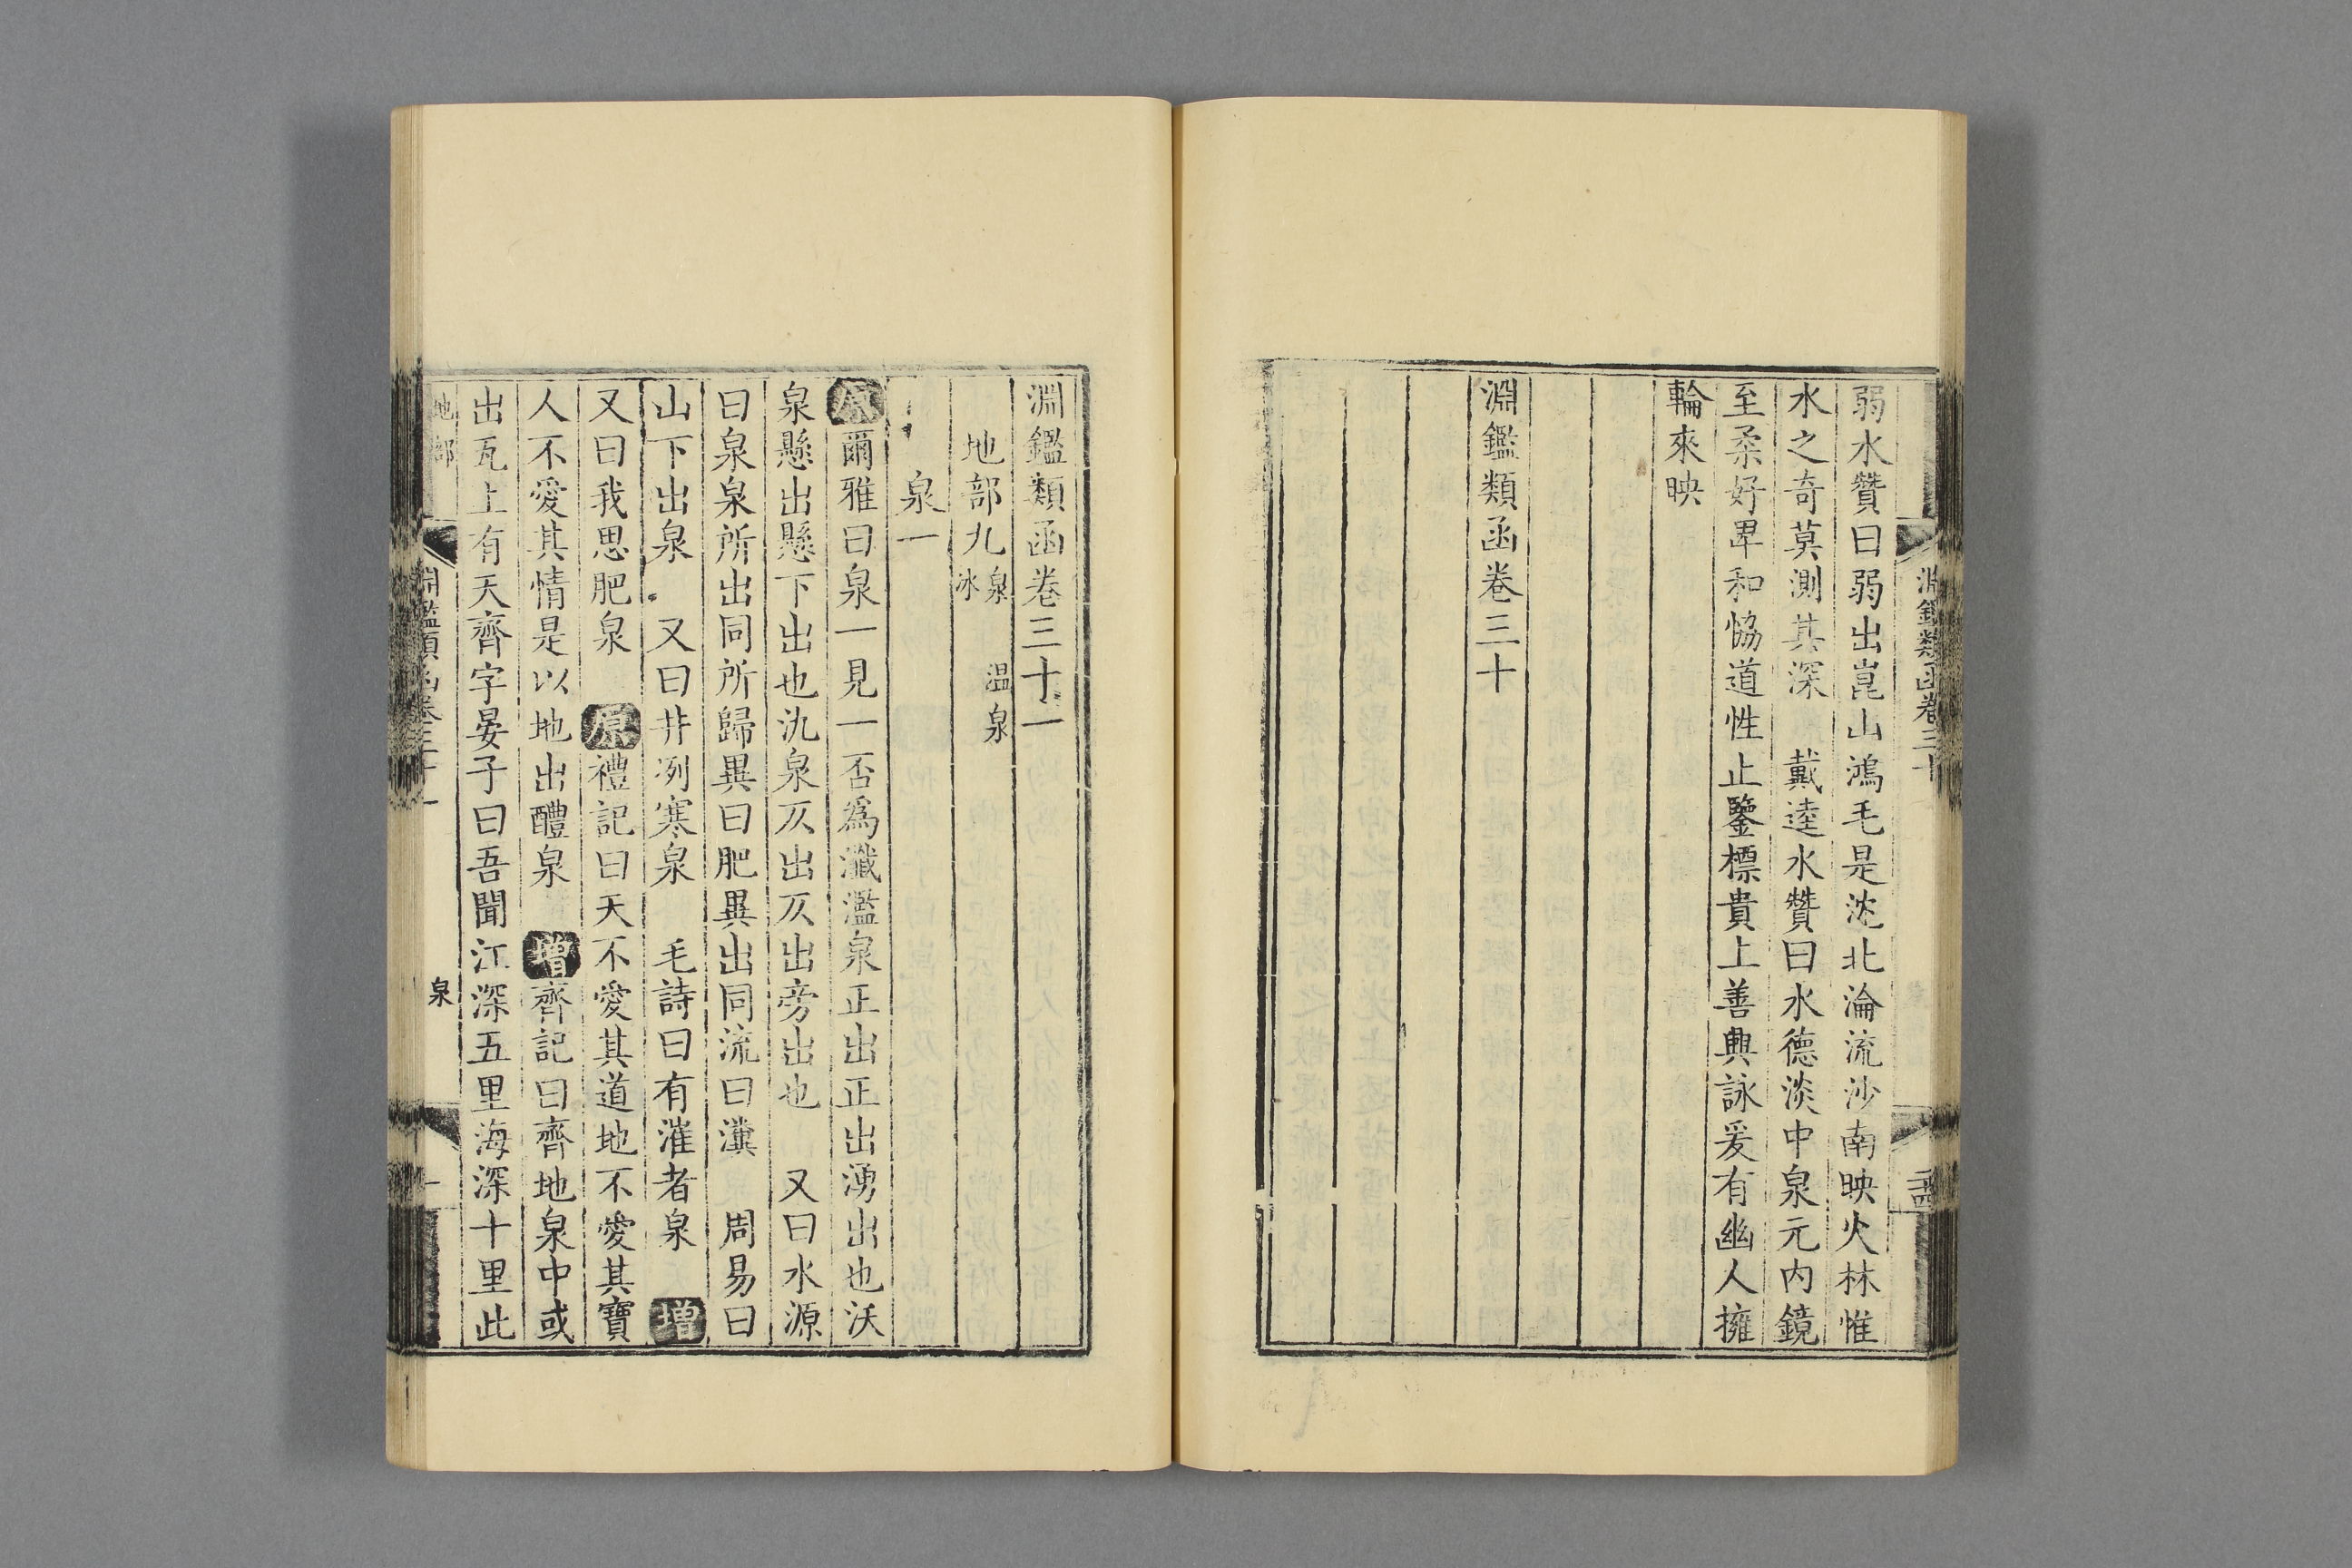 弱水贊曰弱出崑山鴻毛是沈北淪流沙南映火林惟
水之奇莫測其深　戴逵水贊曰水德淡中泉元内鏡
至柔好卑和恊道性止鑒標貴上善興詠爰有幽人擁
輪來映
淵鑑類函卷三十
淵鑑類函卷三十
淵鑑類函卷三十一
地部九泉　温泉
冰
泉一
原爾雅曰泉一見一否為瀸濫泉正出正出湧出也沃
泉懸出懸下出也氿泉仄出仄出旁出也　又曰水源
曰泉泉所出同所歸異曰肥異出同流曰瀵　周易曰
山下出泉　又曰井冽寒泉　毛詩曰有漼者泉　增
又曰我思肥泉　原禮記曰天不愛其道地不愛其寶
人不愛其情是以地出醴泉　增齊記曰齊地泉中或
出瓦上有天齊字晏子曰吾聞江深五里海深十里此
地部
淵鑑類函卷三十一
泉
一